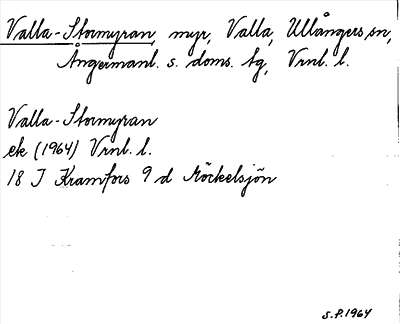 Valla-Stormyran, myr, Valla, Ullångers sn,
Ångermanl. s. doms. tg, Vrnl. l.
Valla-Stormyran
ek (1964) Vrnl. l.
18 I Kramfors 9 d Möckelsjön
S.P. 1964